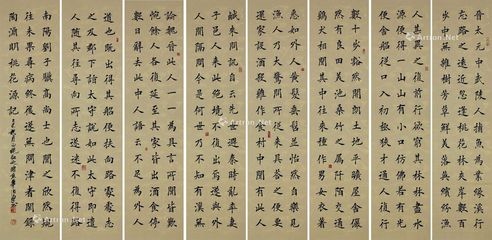 晉太元中武陵人捕魚為業緣溪行
忘路之遠近忽逢桃花林夾岸數百
步中無雜樹芳草鮮美落英繽紛漁
人甚異之復前行欲窮其林林盡水
源便得一山山有小口仿佛若有光
便舍船從口入初極狹才通人復行
數十步豁然開朗土地平曠屋舍儼
然有良田美池桑竹之屬阡陌交通
雞犬相聞其中往來種作男女衣著
悉如外人黃髮垂髫並怡然自樂見
漁人乃大驚問所從來具答之便要
還家設酒殺雞作食村中聞有此人
咸來問訊自云先世避秦時亂率妻
子邑人來此絕境不復出焉遂與外
人間隔問今是何世乃不知有漢無
論魏晉此人一一為具言所聞皆歎
惋餘人各復延至其家皆出酒食停
數日辭去此中人語云不足為外人
道也既出得其船便扶向路處處志
之及郡下詣太守說如此太守即遣
人隨其往尋向所志遂迷不復得路
南陽劉子驥高尚士也聞之欣然規
往未果尋病終後遂無問津者錄
陶淵明桃花源記